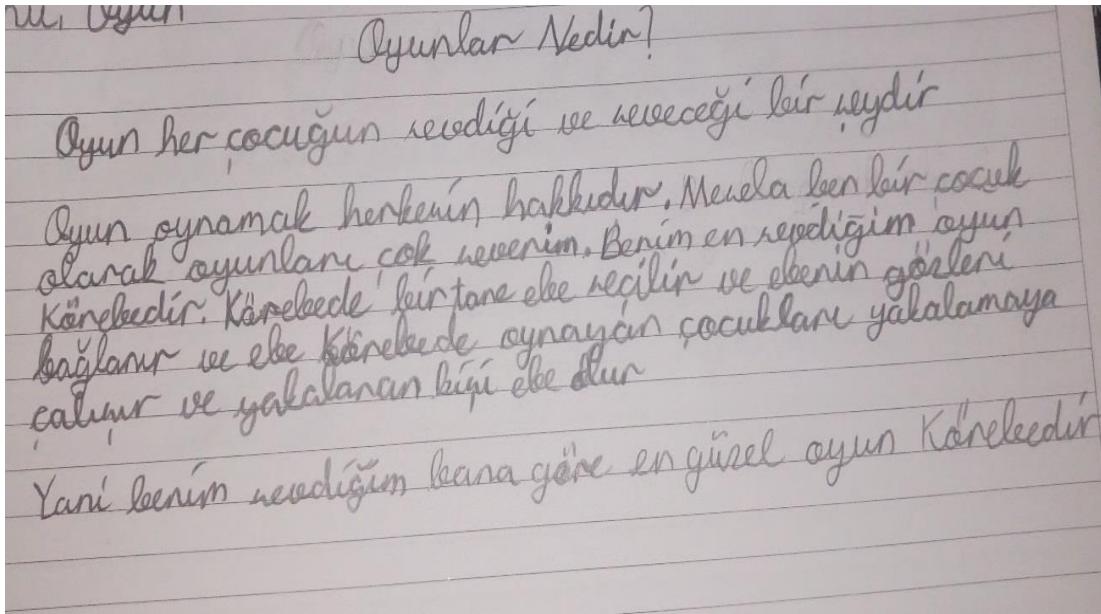 Oyun
Oyunlar Nedir?
Oyun her çocuğun sevdiği ve seveceği bir şeydir
Oyun oynamak herkesin hakkıdır. Mesela ben bir çocuk
olarak oyunları çok severim. Benim en sevdiğim oyun
Körebedir. Körebede bir tane ebe seçilir ve ebenin gözleri
bağlanır ve ebe Körebede oynayan çocukları yakalamaya
çalışır ve yakalanan kişi ebe olur
Yani benim sevdiğim bana göre en güzel oyun Körebedir